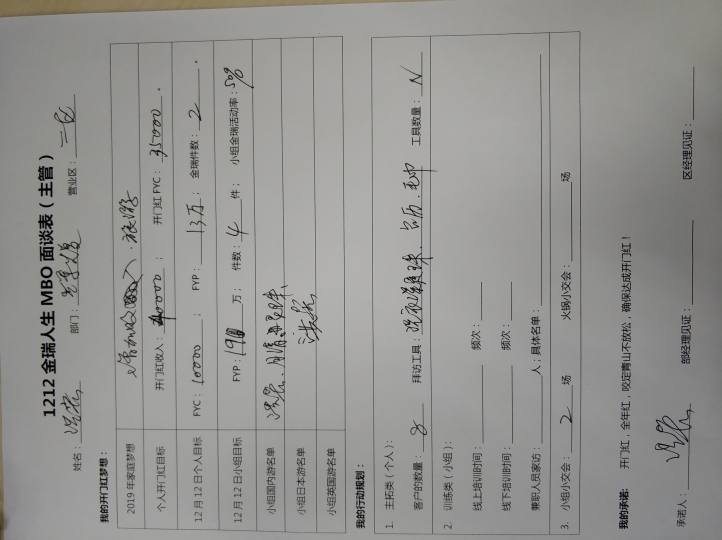 1212 金瑞人生 MBO 面谈表（主管）
姓名： 部门： 营业区：二区
我的开门红梦想：
2019 年家庭梦想 增加收入、旅游
个人开门红目标 开门红收入：40000； 开门红 FYC：35000。
12 月 12 日个人目标 FYC：10000； FYP：13万； 金瑞件数：2。
12 月 12 日小组目标 FYP： 万； 件数：4件； 小组金瑞活动率：50%
小组国内游名单
小组日本游名单
小组英国游名单
我的行动规划：
1. 主拓类（个人）：
客户的数量：8 拜访工具：洗衣凝珠、台历、毛巾 工具数量：N
2. 训练类（小组）：
线上培训时间： 频次：
线下培训时间： 频次：
兼职人员家访： 人；具体名单：
3. 小组小交会：2场 火锅小交会： 场
我的承诺： 开门红，全年红，咬定青山不放松，确保达成开门红！
承诺人： 部经理见证： 区经理见证：